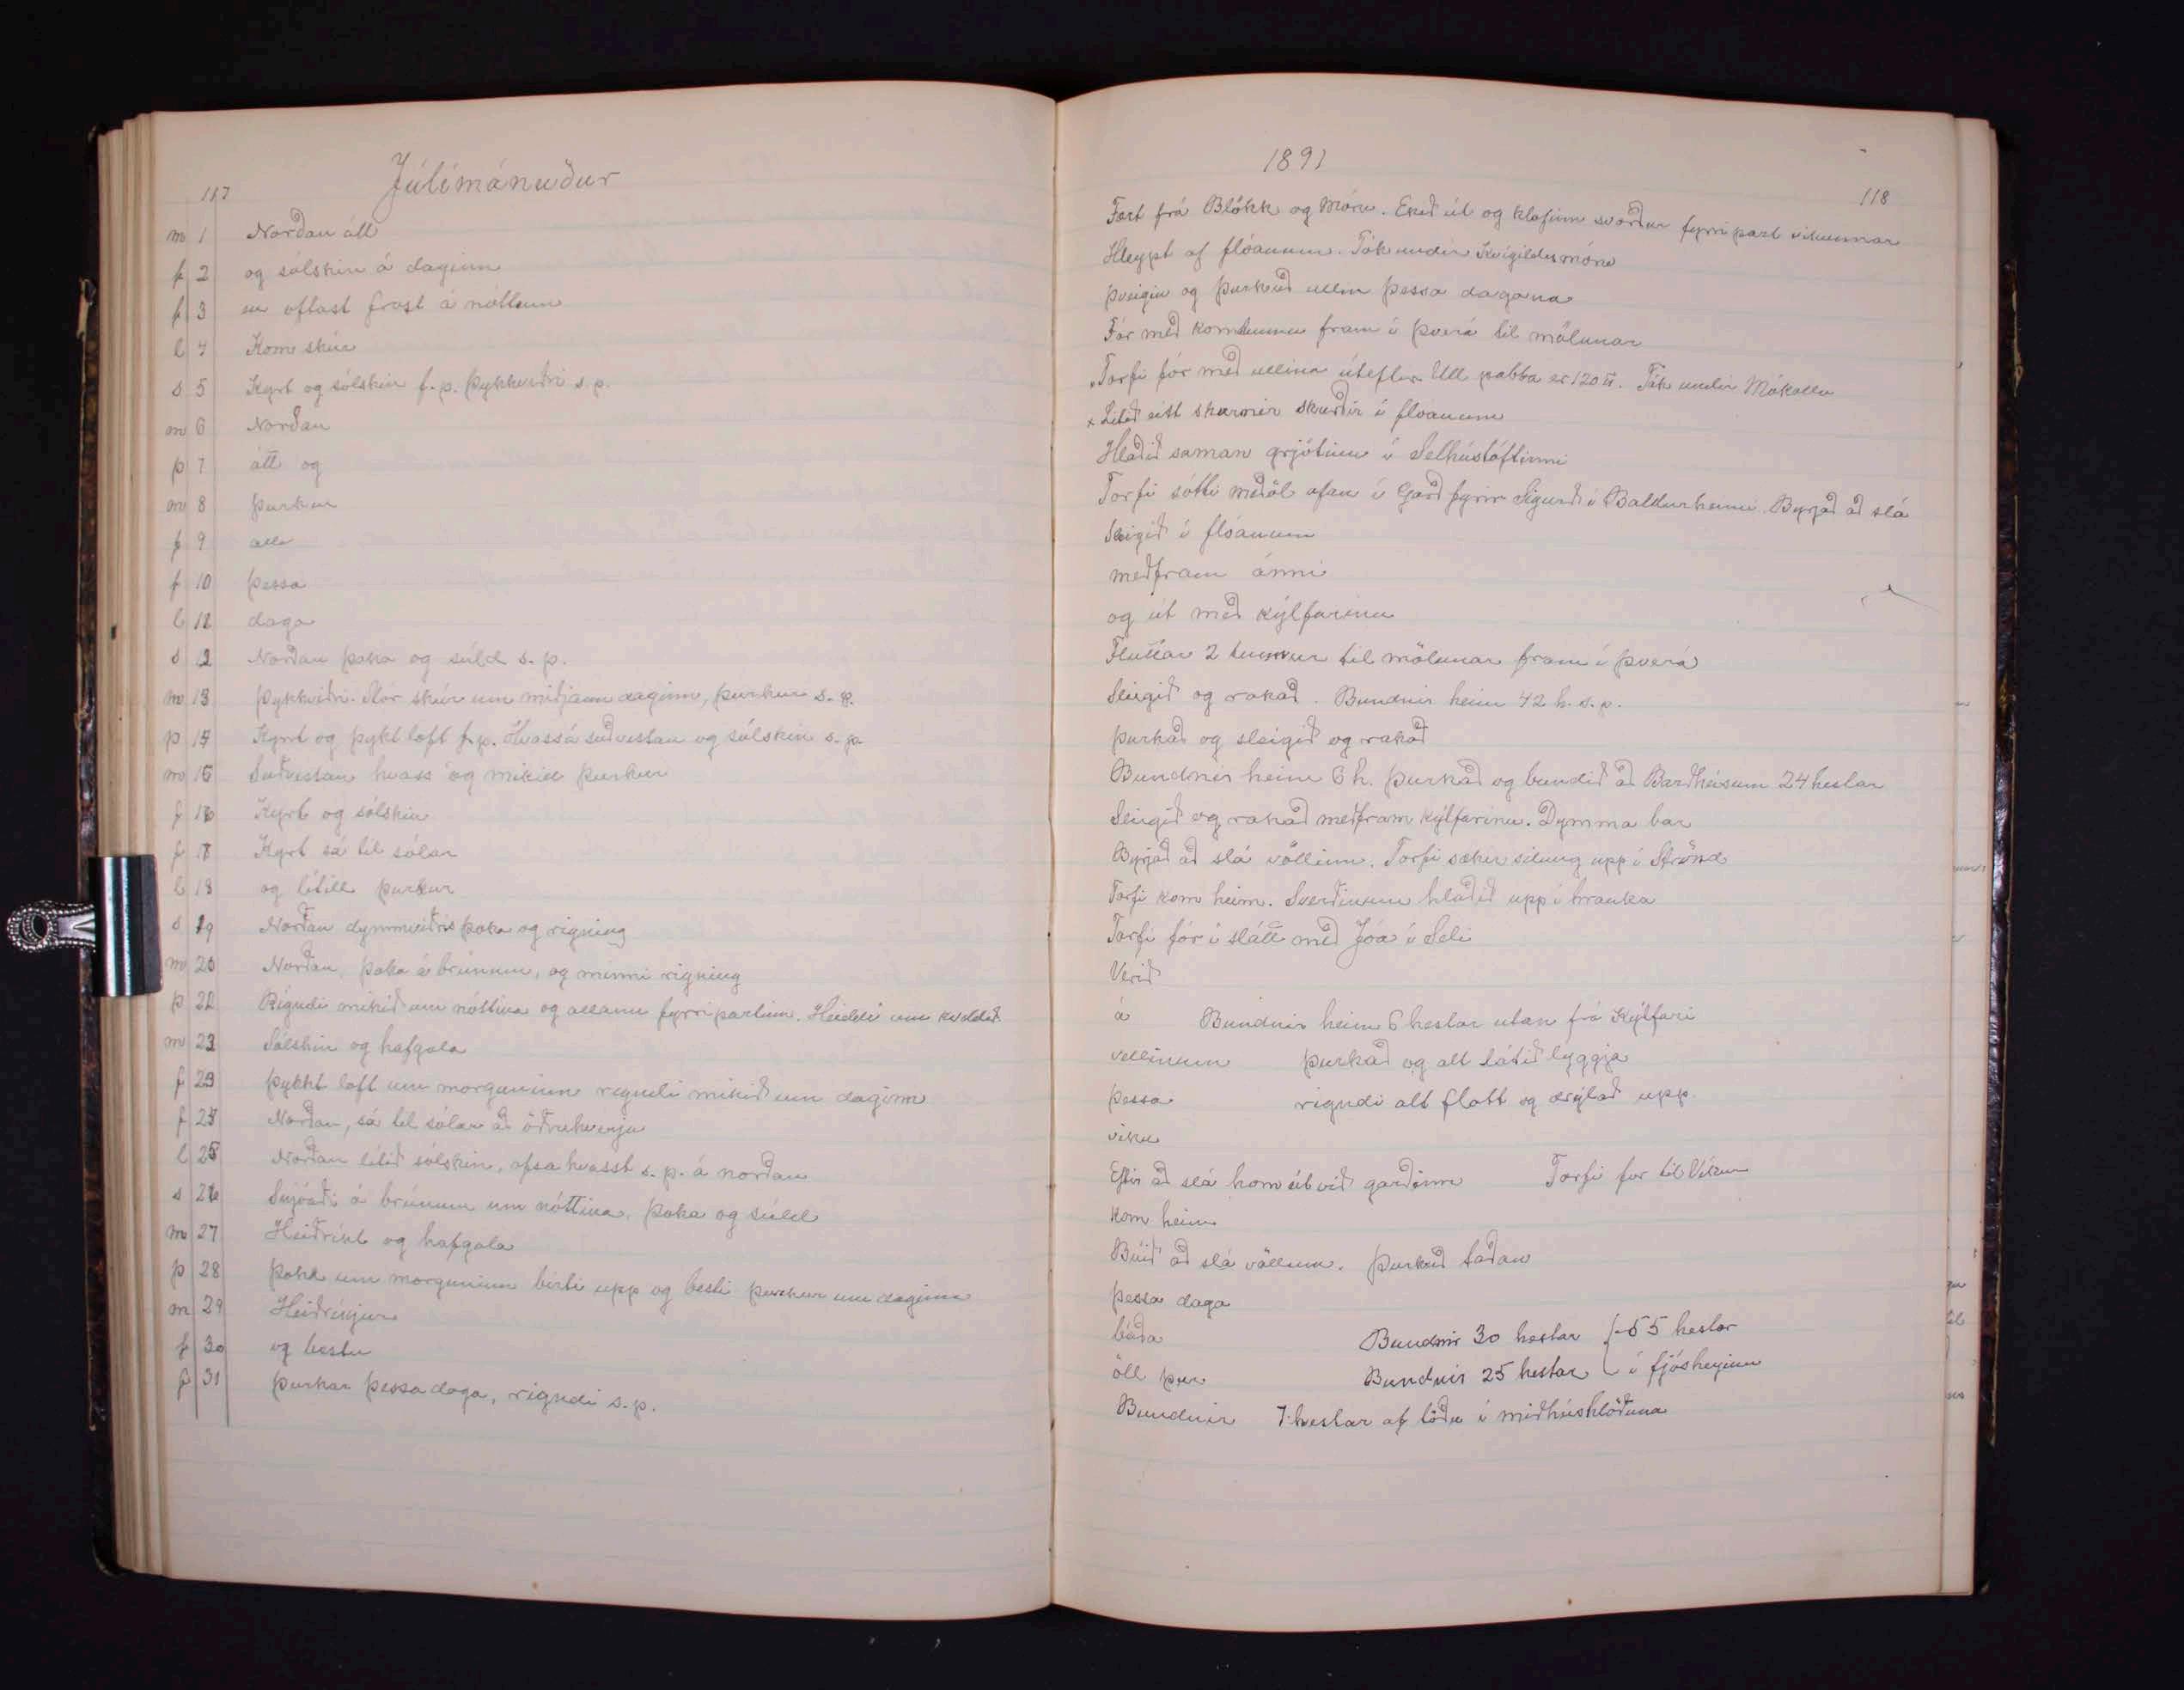 117
Júlímánuður
m 1 Norðan átt
f 2 og sólskin á daginn
f 3 en oftast frost á nóttum
l 4 Kom skúr
s 5 Kyrt og sólskin f.p. Þykkviðri s.p.
m 6 Norðan
þ 7 átt og
m 8 þurkur
f 9 alla
f 10 þessa
l 11 daga
s 12 Norðan þoka og súld s.p.
m 13 Þykkviðri. Stór skúr um miðjann daginn, þurkur s.p.
þ 14 Kyrt og þykt loft f.p. Hvass á suðvestan og sólskin s.p.
m 15 Suðvestan hvass og mikill þurkur
f 16 Kyrt og sólskin
f 17 Kyrt sá til sólar
l 18 og lítill þurkur
s 19 Norðan dymmviðris þoka og rigning
m 20 Norðan, þoka á brúnum, og minni rigning
þ 21 Rigndi mikið um nóttina og allann fyrripartinn. Heiddi um kvöldið
m 22 Sólskin og hafgola
f 23 Þykkt loft um morguninn rigndi mikið um daginn
f 24 Norðan, sá til sólar að öðruhverju
l 25 Norðan lítið sólskin, ofsa hvasst s.p. á norðan
s 26 Snjóaði á brúnum um nóttina, þoka og súld
m 27 Heiðríkt og hafgola
þ 28 Þoka um morguninn birti upp og besti þurkur um daginn
m 29 Heiðríkjur
f 30 og bestu
f 31 þurkar þessa daga, rigndi s.p.
1891
118
Fært frá Blökk og Móru. Ekið út og klofinn svörður fyrri part vikunnar
Hleypt af flóanum. Tók undir Kvígildismóru
Þvegin og þurkuð ullin þessa dagana
Fór með korntunnu fram í Þverá til mölunar
Torfi fór með ullina úteftir Ull pabba er 120 tt. Tók undir Mókollu
x Litið eitt skurnir skurðir í flóanum
Hlaðið saman grjótinu í Selhústóftinni
Torfi sótti meðöl ofan í Garð fyrir Sigurð í Baldursheimi. Byrjað að slá
Slegið í flóanum
meðfram ánni
og út með kýlfarinu
Fluttar 2 tunnur til mölunar fram í Þverá
Slegið og rakað. Bundnir heim 42 h. s.p.
Þurkað og slegið og rakað
Bundnir heim 6 h. Þurkað og bundið að Barðhúsum 24 hestar
Slegið og rakað meðfram kýlfarinu. Dymma bar
Byrjað að slá völlinn. Torfi sækir silung upp í Strönd
Torfi kom heim. Sverðinum hlaðið upp í hrauka
Torfi fór í slátt með Jóa í Seli
Verið
á Bundnir heim 6 hestar utan frá Kýlfari
vellinum þurkað og alt látið lyggja
þessa rigndi alt flatt og drýlað upp.
viku
Eftir að slá hom út við garðinn Torfi fór til Víkur
Kom heim
Búið að slá völlinn. Þurkuð taðan
þessa daga
báða Bundnir 30 hestar } 55 hestar
öll þur Bundnir 25 hestar í fjósheyinu
Bundnir 7 hestar af töðu í miðhúshlöðuna